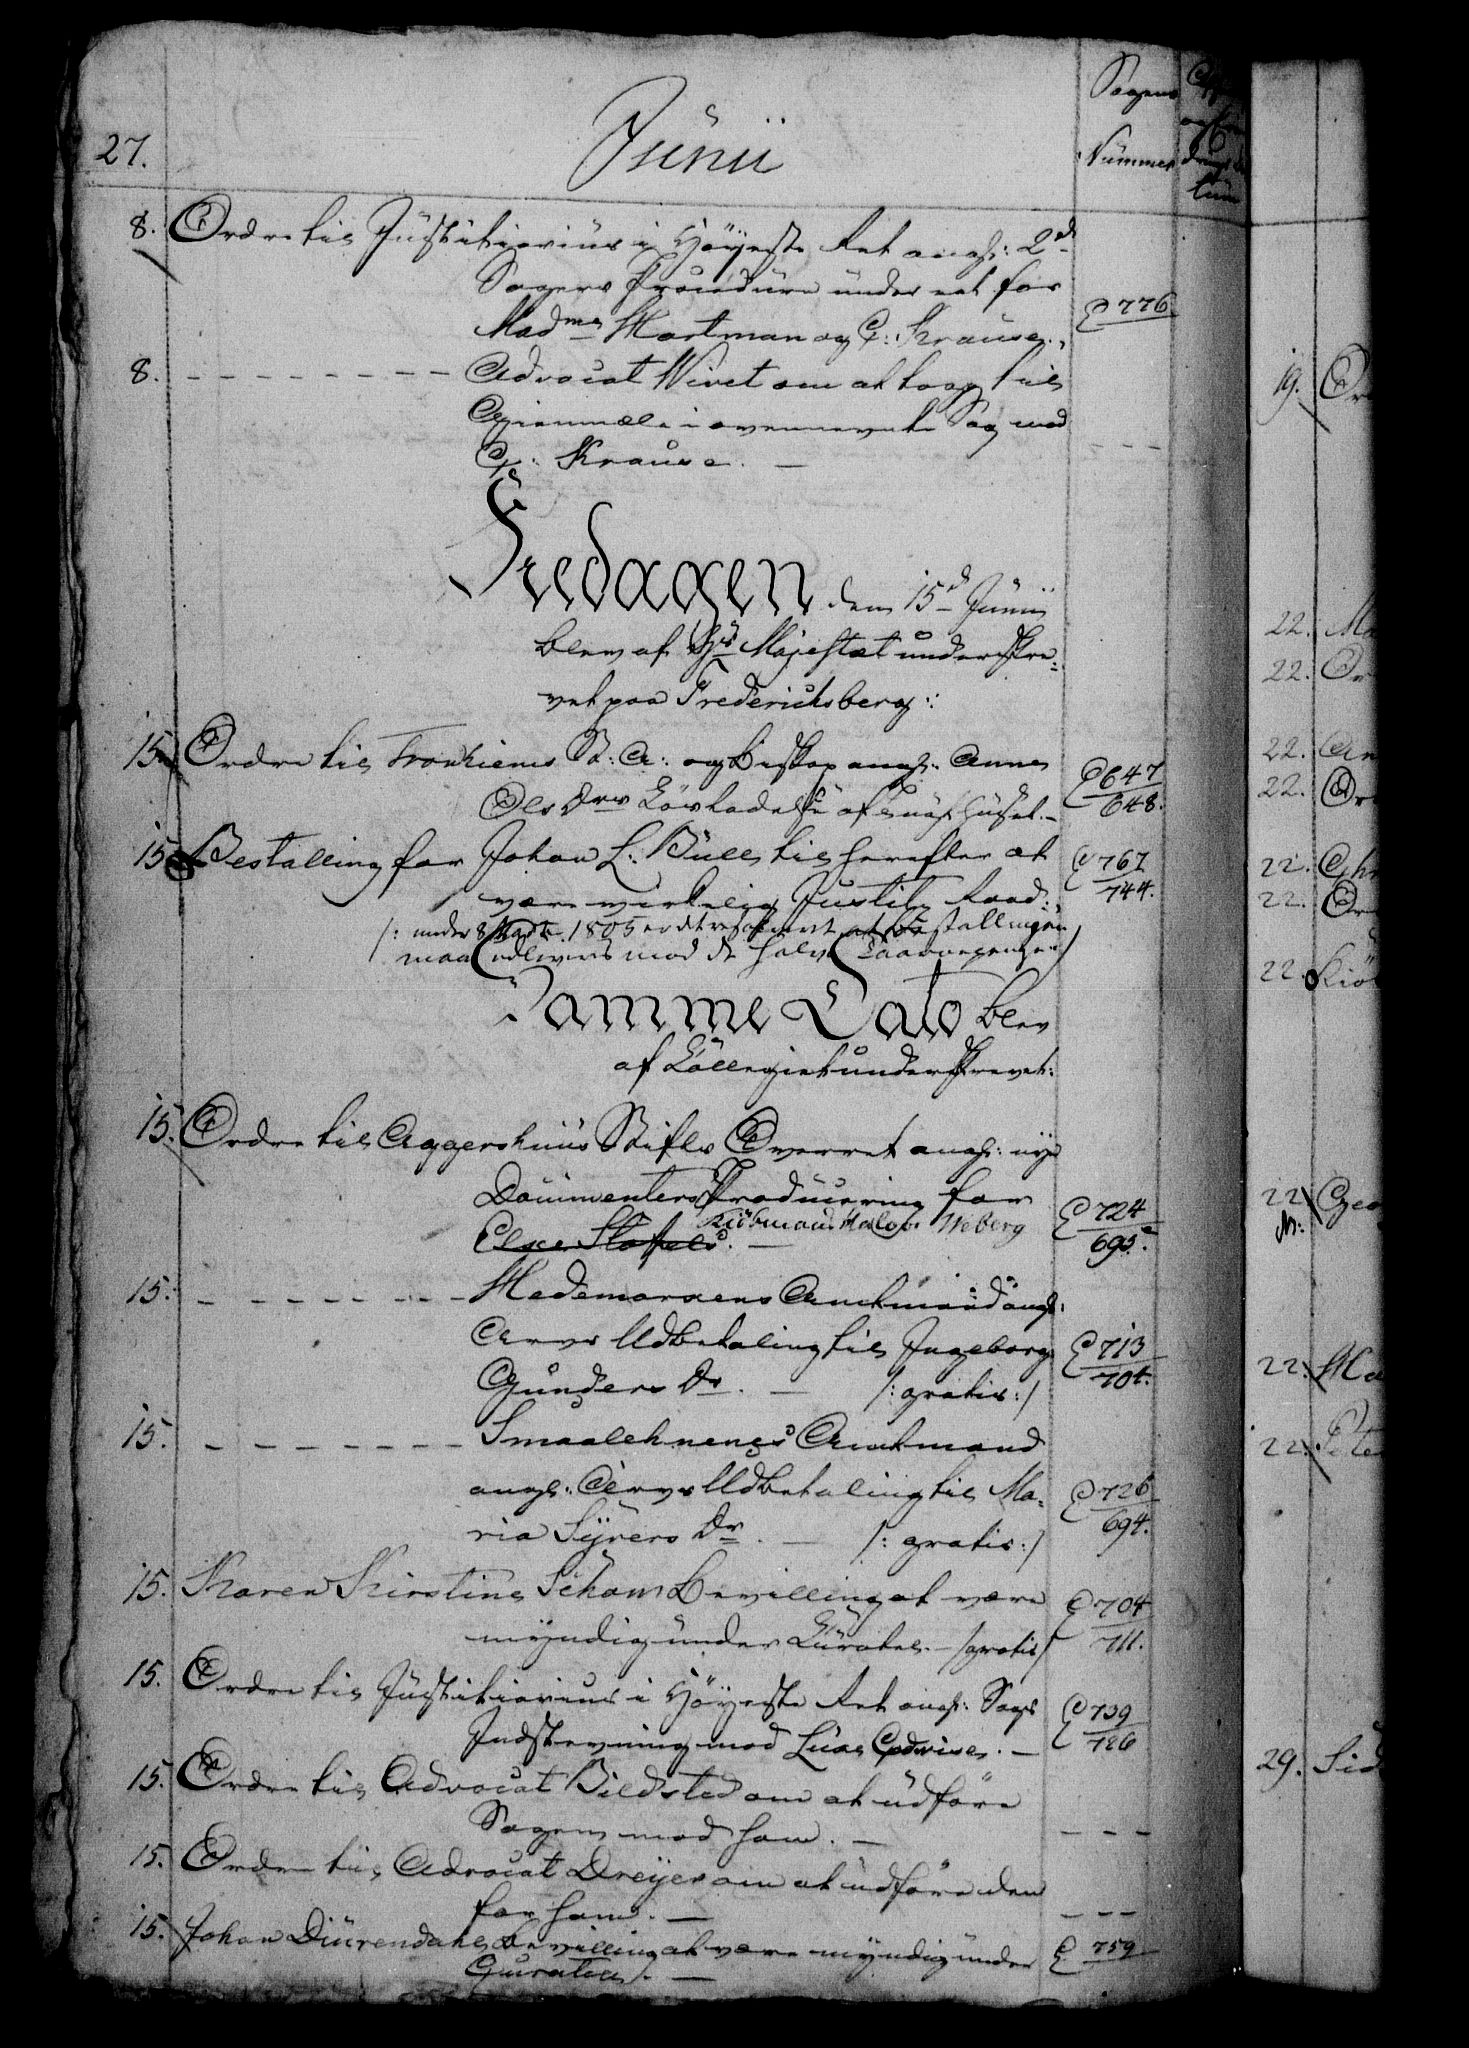 27.
Junii
Sagens
Nummer
8. Ordre til Justitiarius i Höyeste Ret angl: 2de
Sagers Procedure under eet for
Madme Hartman og C: Krause.
E 776
8. - - - - - - - - - Advocat Wivet om at tage til
Gienmæle i ovennevnte Sag mod
C: Krause. —
- - -
Fredagen den 15d Junii
blev af Hs Majestæt underskre-
vet paa Fredericksberg:
15. Ordre til Tronhiems S: A: og Biskop angl: Anne
Ols Drs Lösladelse af Tugthuset. —
E 647
648.
15. Bestalling for Johan L: Bull til herefter at
være virkelig Justitz Raad.
E 767
744.
/: under 8 Martii 1805 er det resolveret at Bestallingen
maa udleveres mod de halve
Samme Dato blev
af Collegiet underskrevet:
15. Ordre til Aggershuus Stifts Overret angl: nye
Documenters Producering for
Kiöbmand Weberg
E 724
695.
15. - - - - - - - Hedemarkens Amtmand angl:
Arvs Udbetaling til Ingeborg
Gunders Dr. — /: gratis :/
E 713
701.
15. - - - - - - - Smaalehnenes Amtmand
angl: Arvs Udbetaling til Ma-
ria Syvers Dr. — /: gratis :/
E 726
694.
15. Karen Kirstine Bevilling at være
myndig under Curatel. — /gratis/
E 704
711.
15. Ordre til Justitiarius i Höyeste Ret angl: Sags
Indstevning mod Lucas —
E 739
726
15. Ordre til Advocat Bildsted om at udföre
Sagen mod ham. —
- - -
15. Ordre til Advocat Dreyer om at udföre den
for ham. —
- - -
15. Johan Diurendahl Bevilling at være myndig under
Curatel. —
E 759
19. Or
22. Ma
22. Or
22. An
22. Or
22. Chr
22. Or
22. Kiö
22. Geo
22. Ma
22. Pete
29. Sid